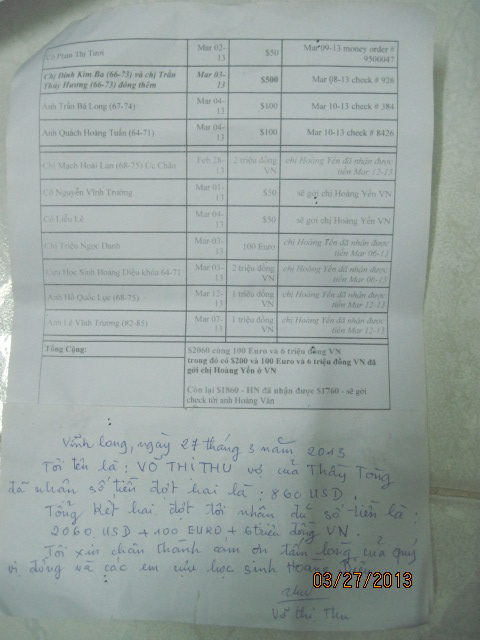 Cô Phan Thị Tươi Mar 02-13 $50 Mar 09-13 money order # 9500047
Chị Đinh Kim Ba (66-73) và chị Trần Thúy Hương (66-73) đóng thêm Mar 03-13 $500 Mar 08-13 check # 926
Anh Trần Bá Long (67-74) Mar 04-13 $100 Mar 10-13 check # 384
Anh Quách Hoàng Tuấn (64-71) Mar 04-13 $100 Mar 10-13 check # 8426
Chị Mạch Hoài Lan (68-75) Úc Châu Feb 28-13 2 triệu đồng VN chị Hoàng Yến đã nhận được tiền Mar 12-13
Cô Nguyễn Vĩnh Trường Mar 01-13 $50 sẽ gởi chị Hoàng Yến VN
Cô Liễu Lê Mar 04-13 $50 sẽ gởi chị Hoàng Yến VN
Chị Triệu Ngọc Danh Mar 03-13 100 Euro chị Hoàng Yến đã nhận được tiền Mar 06-13
Cựu Học Sinh Hoàng Diệu khóa 64-71 Mar 03-13 2 triệu đồng VN chị Hoàng Yến đã nhận được tiền Mar 06-13
Anh Hồ Quốc Lực (68-75) Mar 12-13 1 triệu đồng VN chị Hoàng Yến đã nhận được tiền Mar 12-13
Anh Lê Vĩnh Trường (82-85) Mar 07-13 1 triệu đồng VN chị Hoàng Yến đã nhận được tiền Mar 12-13
Tổng Cộng: $2060 cùng 100 Euro và 6 triệu đồng VN
trong đó có $200 và 100 Euro và 6 triệu đồng VN đã
gởi chị Hoàng Yến ở VN
Còn lại $1860 - HN đã nhận được $1760 - sẽ gởi
check tới anh Hoàng Vân
Vĩnh long, ngày 27 tháng 3 năm 2013
Tôi tên là : VÕ THỊ THU vợ của Thầy Tòng
đã nhận số tiền đợt hai là : 860 USD.
Tổng kết hai đợt tôi nhận đủ số tiền là :
2060 USD + 100 EURO + 6 triệu đồng VN.
Tôi xin chân thành cảm ơn tấm lòng của quý
vị đồng và các em cựu học sinh Hoàng Diệu
03/27/2013
Thu
Võ thị Thu